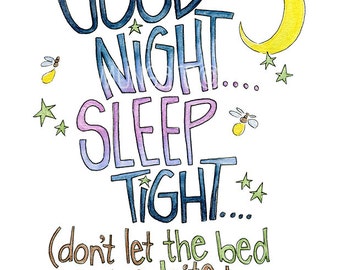 GOOD
NIGHT....
SLEEP
TIGHT....
(don't let the bed